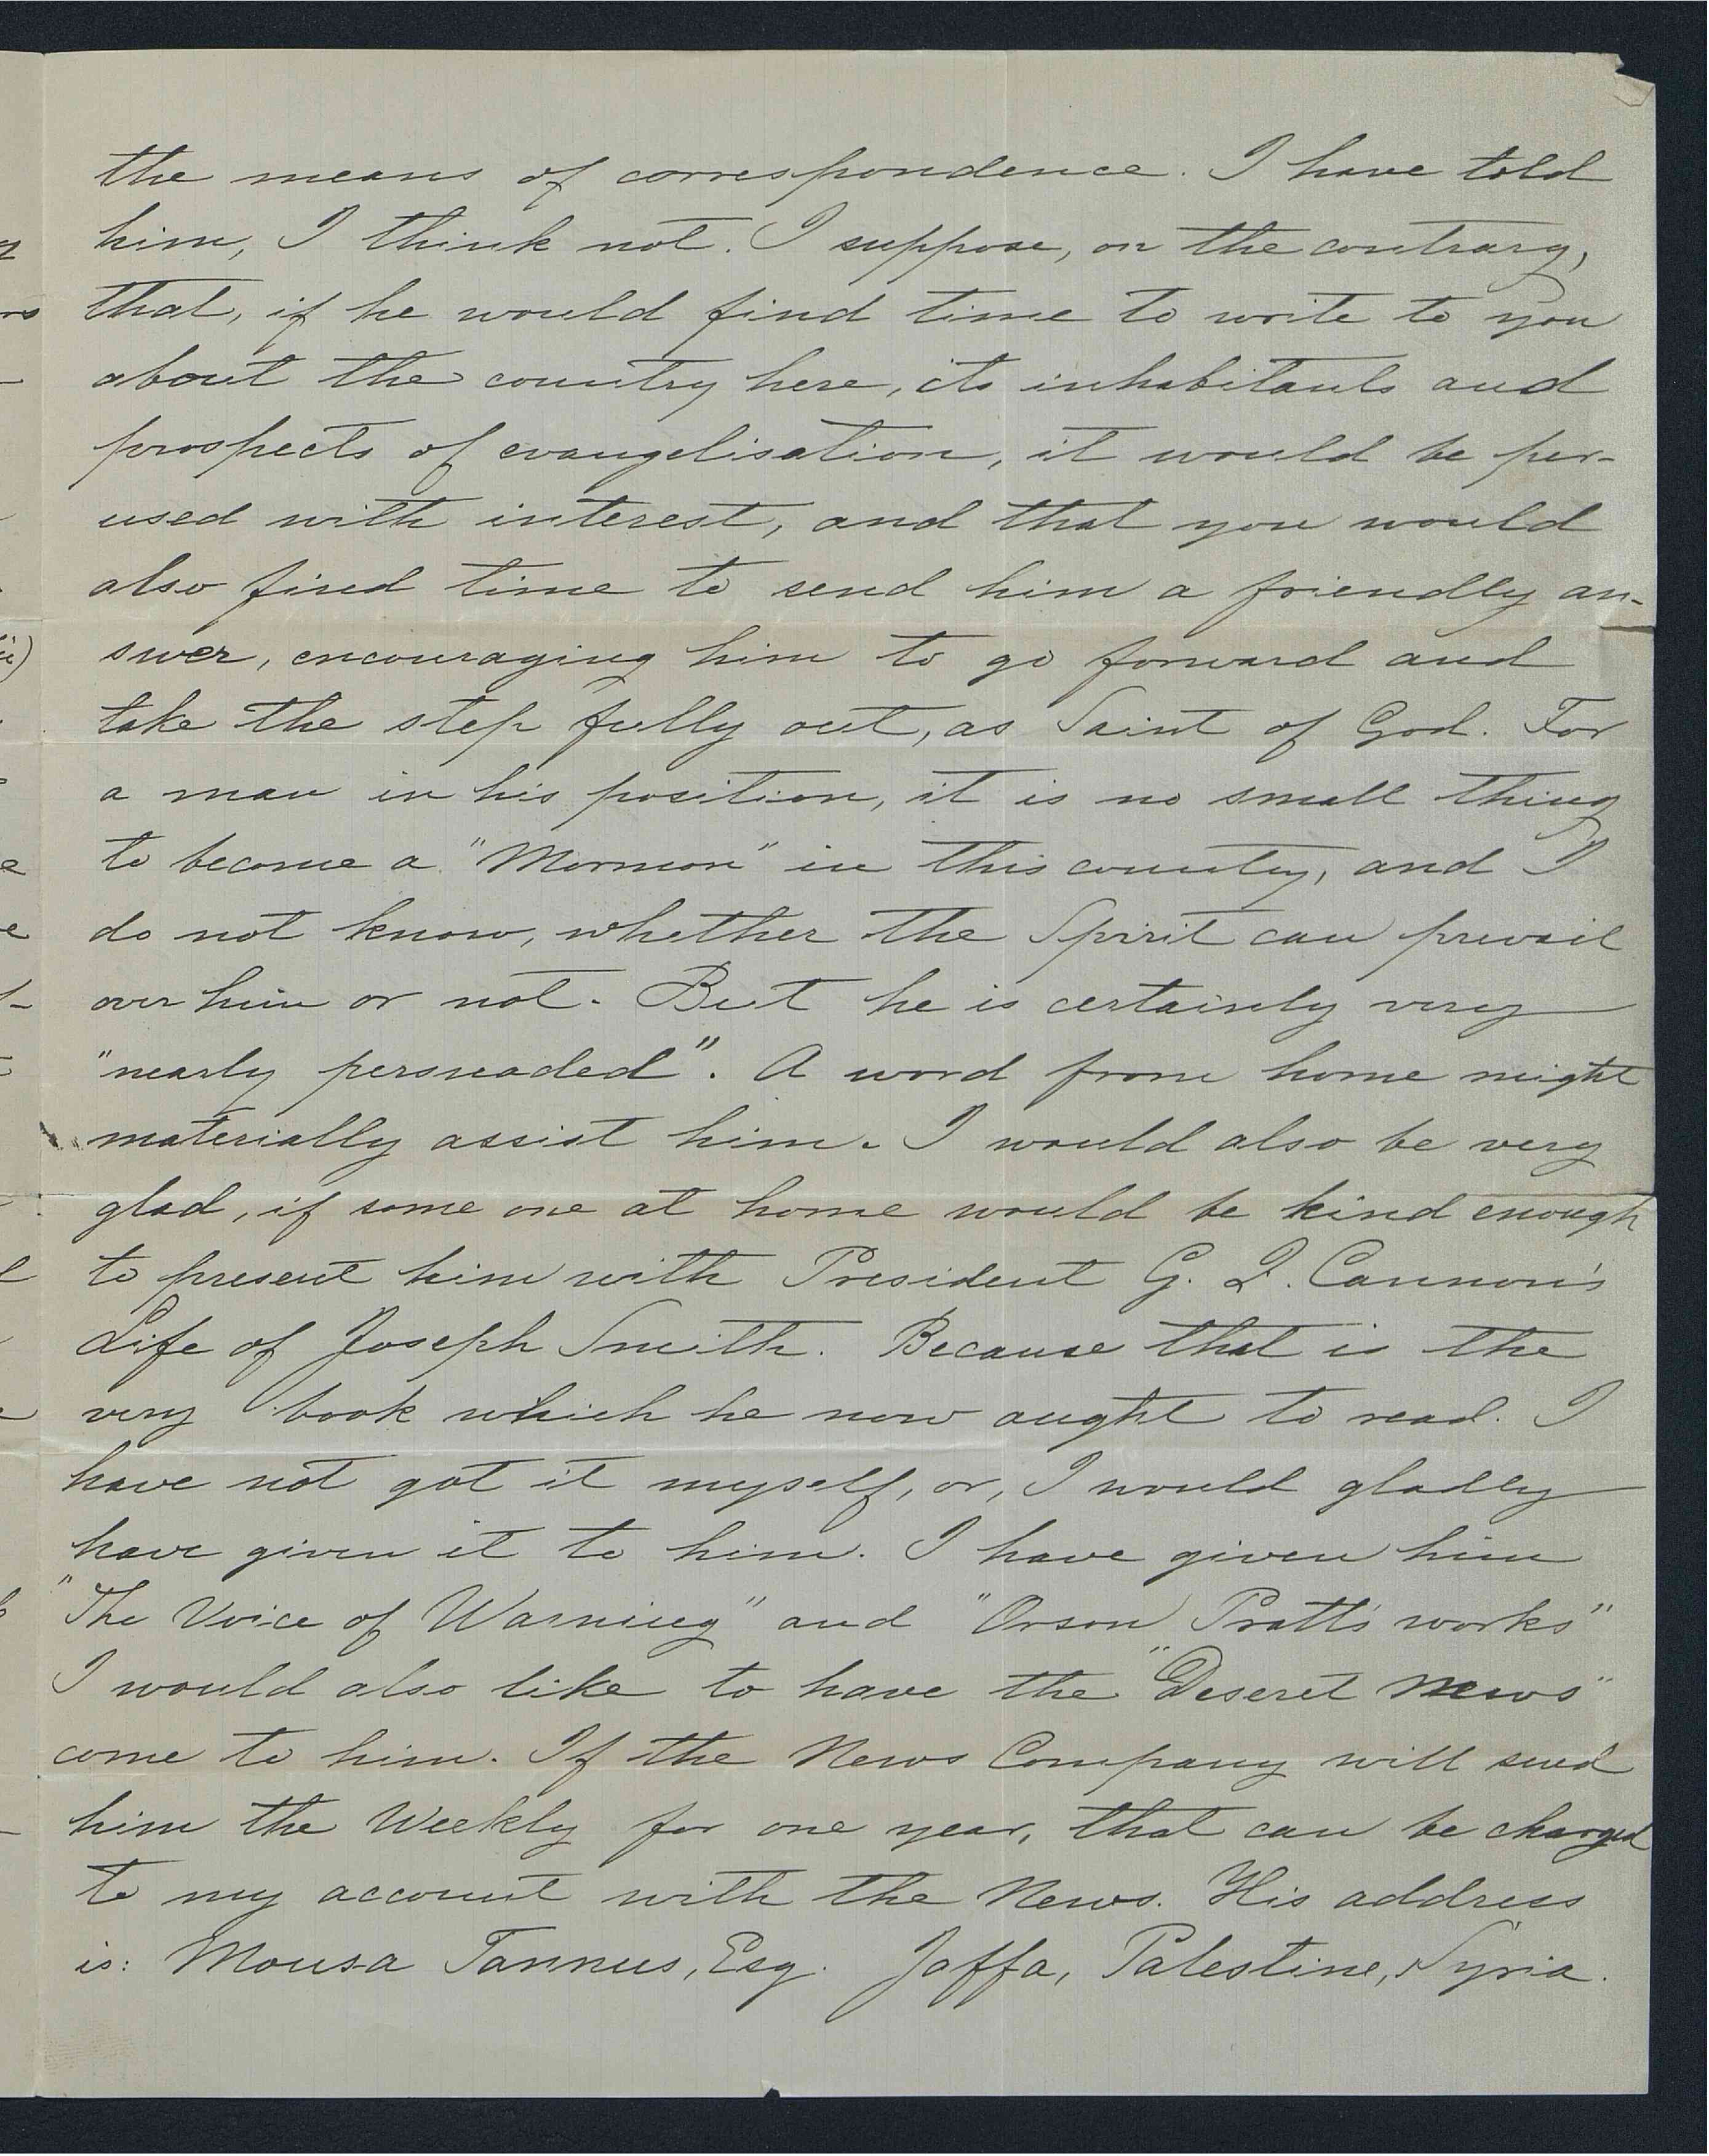 the means of correspondence. I have told
him, I think not. I suppose, on the contrary,
that, if he would find time to write to you
about the country here, its inhabitants and
prospects of evangelisation, it would be per-
used with interest, and that you would
also find time to send him a friendly an-
swer, encouraging him to go forward and
take the step fully out, as Saint of God. For
a man in his position, it is no small thing
to become a "Mormon" in this country, and I
do not know, whether the Spirit can prevail
over him or not. But he is certainly very
"nearly persuaded". A word from home might
materially assist him. I would also be very
glad, if some one at home would be kind enough
to present him with President G. Q. Cannon's
Life of Joseph Smith. Because that is the
very book which he now aught to read. I
have not got it myself, or, I would gladly
have given it to him. I have given him
"The Voice of Warning" and "Orson Pratt's works"
I would also like to have the "Deseret News"
come to him. If the News Company will send
him the Weekly for one year, that can be charged
to my account with the News. His address
is: Mousa Tannus, Esq. Jaffa, Palestine, Syria.